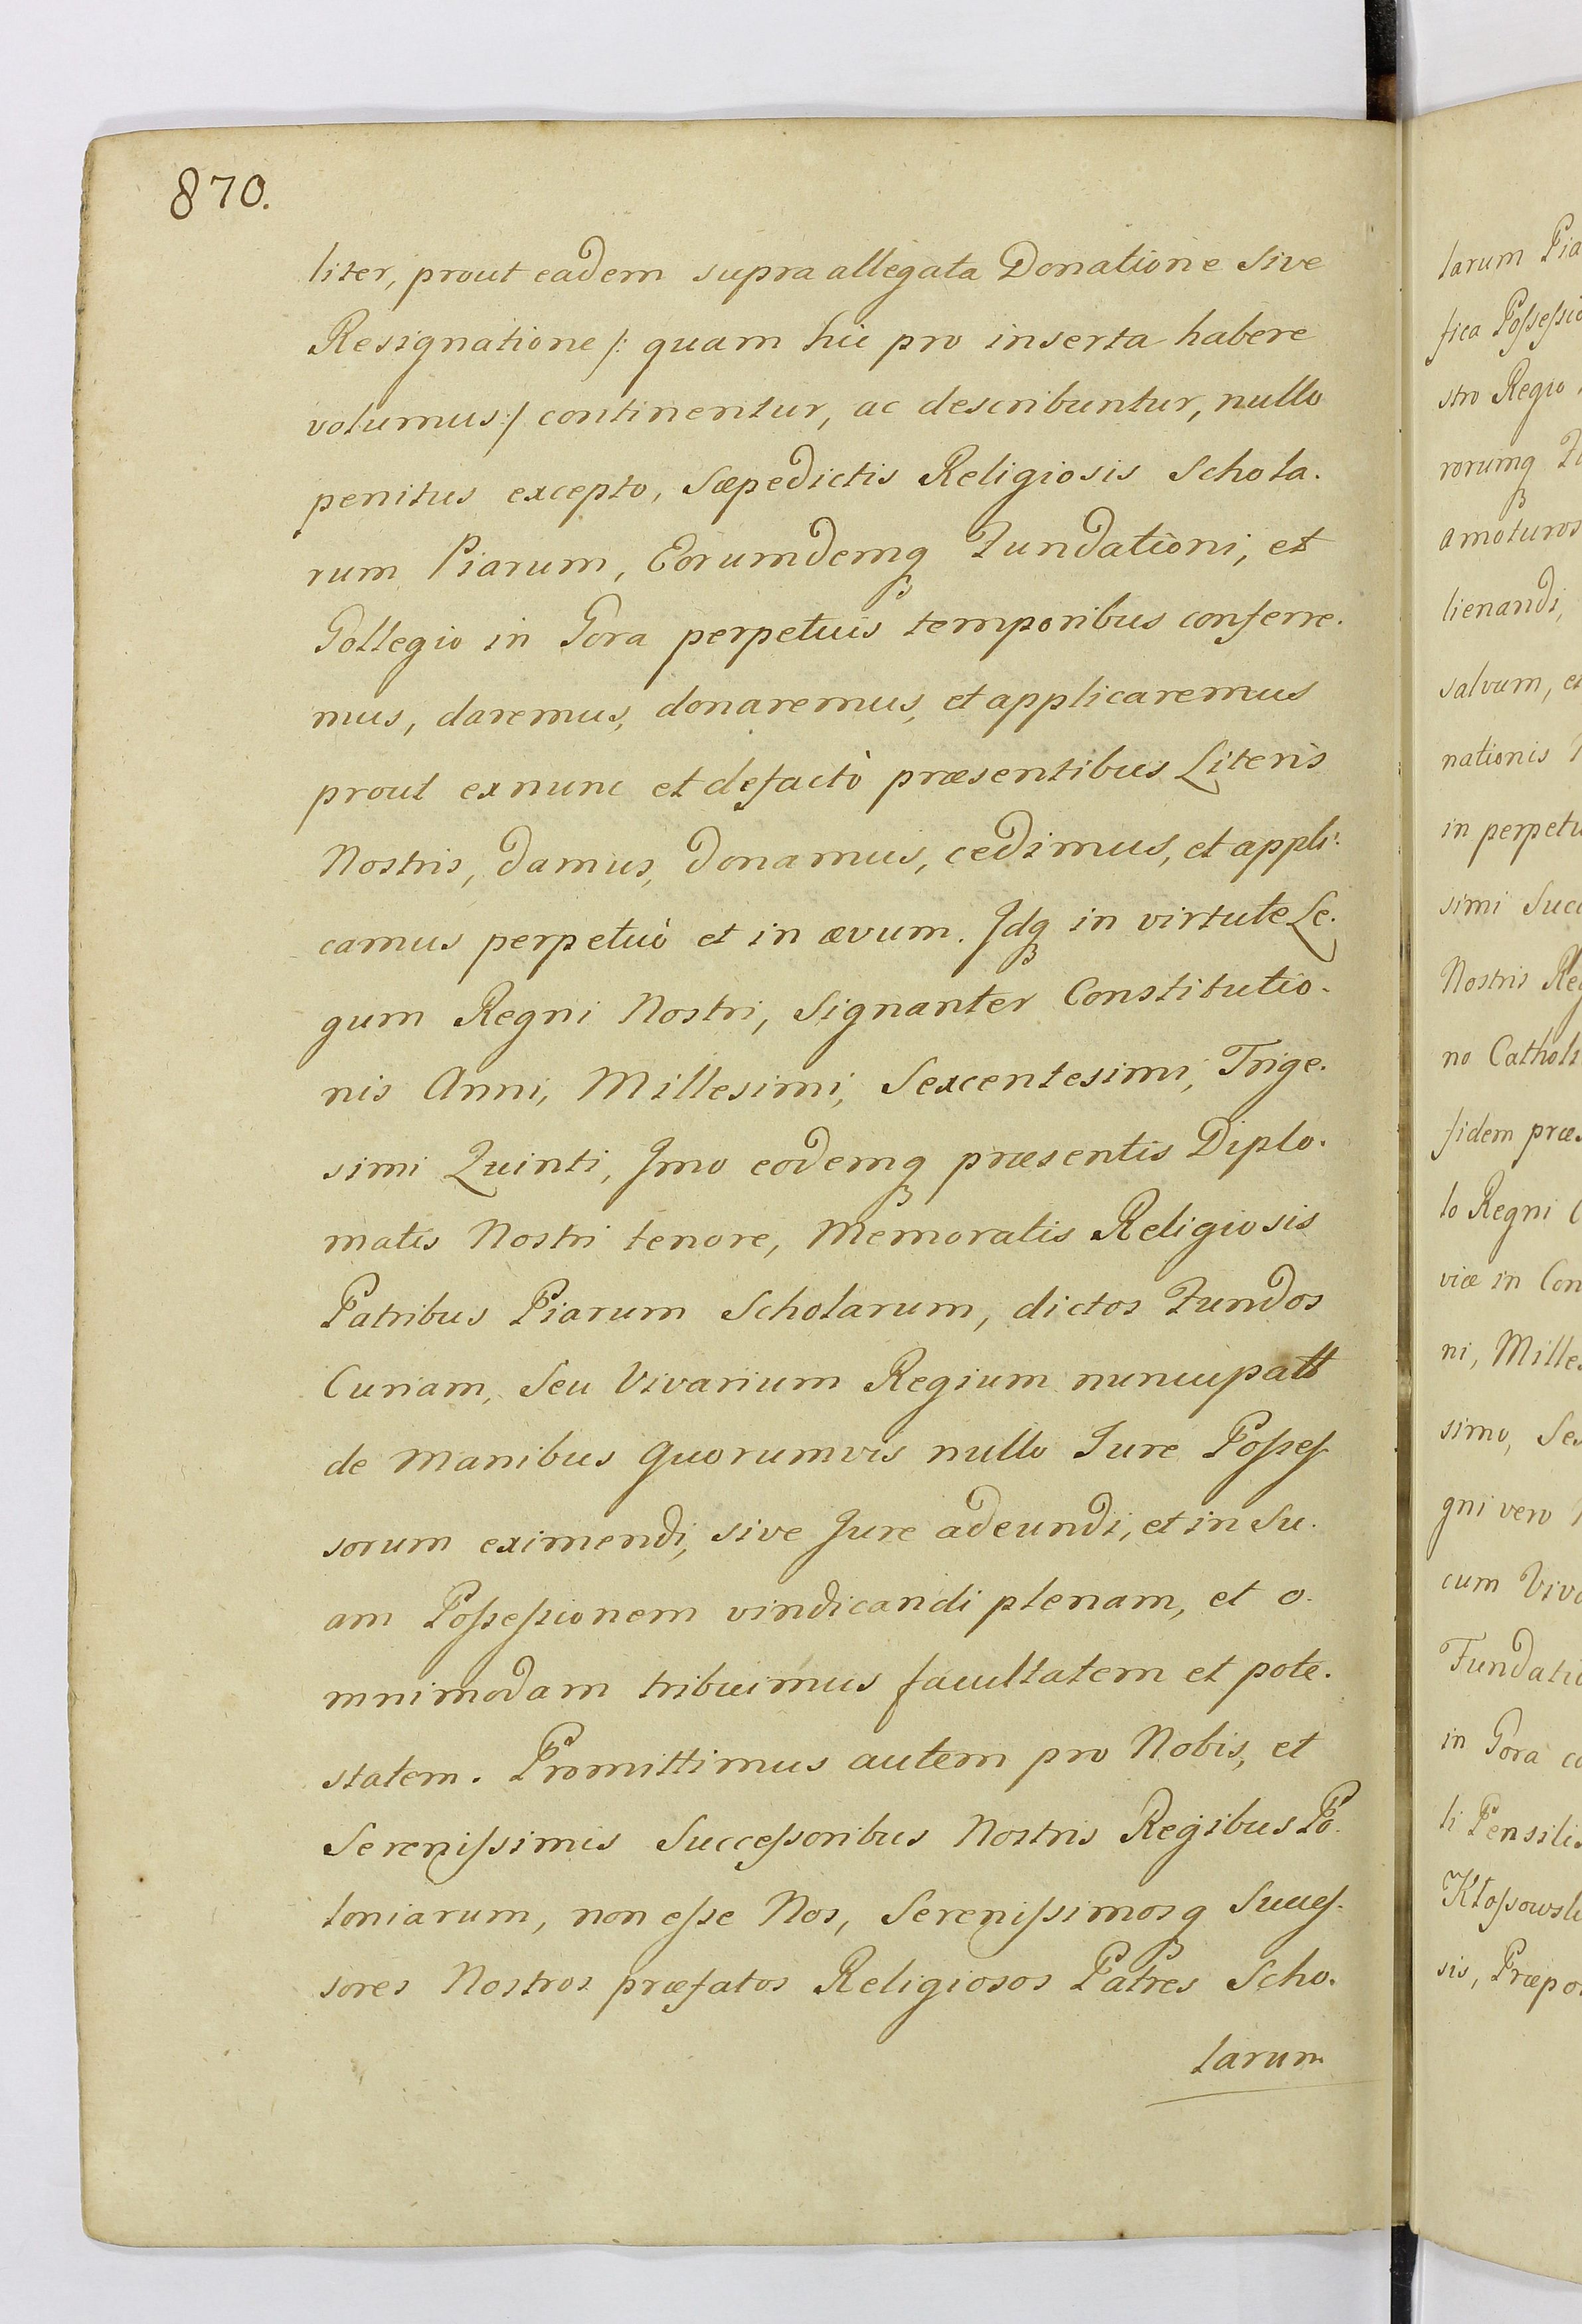 870.
liter, prout eadem supra allegata Donatione Sive
Resignatione /: quam hic pro inserta habere
volumus :/ continentur, ac describuntur, nullo
penitus excepto, Sæpedictis Religiosis Schola.
rum Piarum, Eorumdemqꝫ Fundationi, et
Collegio in Gora perpetuis temporibus conferre.
mus, daremus, donaremus, et applicaremus
prout ex nunc et defactò præsentibus Literis
Nostris, damus, donamus, cedimus, et appli.
camus perpetuò et in ævum. Jdqꝫ in virtute Le.
gum Regni Nostri, Signanter Constitutio.
nis Anni, Millesimi, Sexcentesimi, Trige.
simi Quinti, Jmo eodemqꝫ præsentis Diplo.
matis Nostri tenore, Memoratis Religiosis
Patribus Piarum Scholarum, dictos Fundos
Curiam, Seu Vivarium Regium nuncupatt
de Manibus quorumvis nullo Jure Poſseſ
sorum eximendi, sive Jure adeundi, et in Su.
am Poſseſsionem vindicandi plenam, et o.
mnimodam tribuimus facultatem et pote.
statem. Promittimus autem pro Nobis, et
Sereniſsimis Succeſsoribus Nostris Regibus Po.
loniarum, non eſse Nos, Sereniſsimosqꝫ Succeſ.
sores Nostros præfatos Religiosos Patres Scho.
larum
larum Pia
fica Poſseſsio
stro Regio
rorumqꝫ
amoturos
lienandi,
salvum, et
nationis
in perpetu
simi Succ
Nostris Reg
no Catholi
fidem præs
lo Regni C
viæ in Con
ni, Milles
simo, Sex
gni vero
cum Viva
Fundatio
in Gora co
li Pensilis
Kłoſsowsk
sis, Præpos